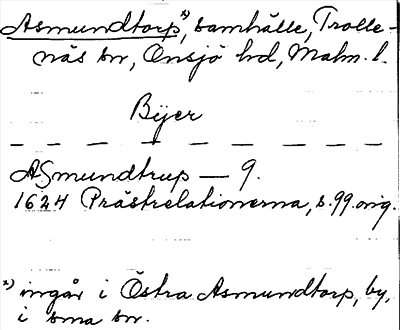 Asmundtorp*), samhälle, Trolle-
näs sn, Onsjö hd, Malm. l.
Bijer
ASmundtrup — 9.
1624 Prästrelationerna, s. 99. orig.
*) ingår i Östra Asmundtorp, by,
i sma sn.